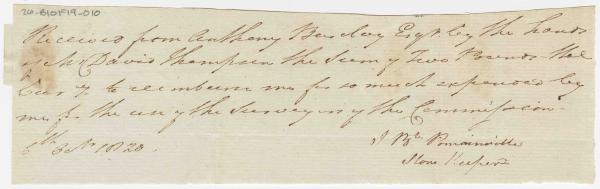 24-B101F19-010
Received from Anthony Barclay Esqr. by the hands
of Mr. David Thompson the Sum of Two Pounds Hal
Curcy. to reimburse me for so much expended by
me for the use of the Surveyors of the Commission
6th 1820.
J. Bte. Pomainville
Store Keeper